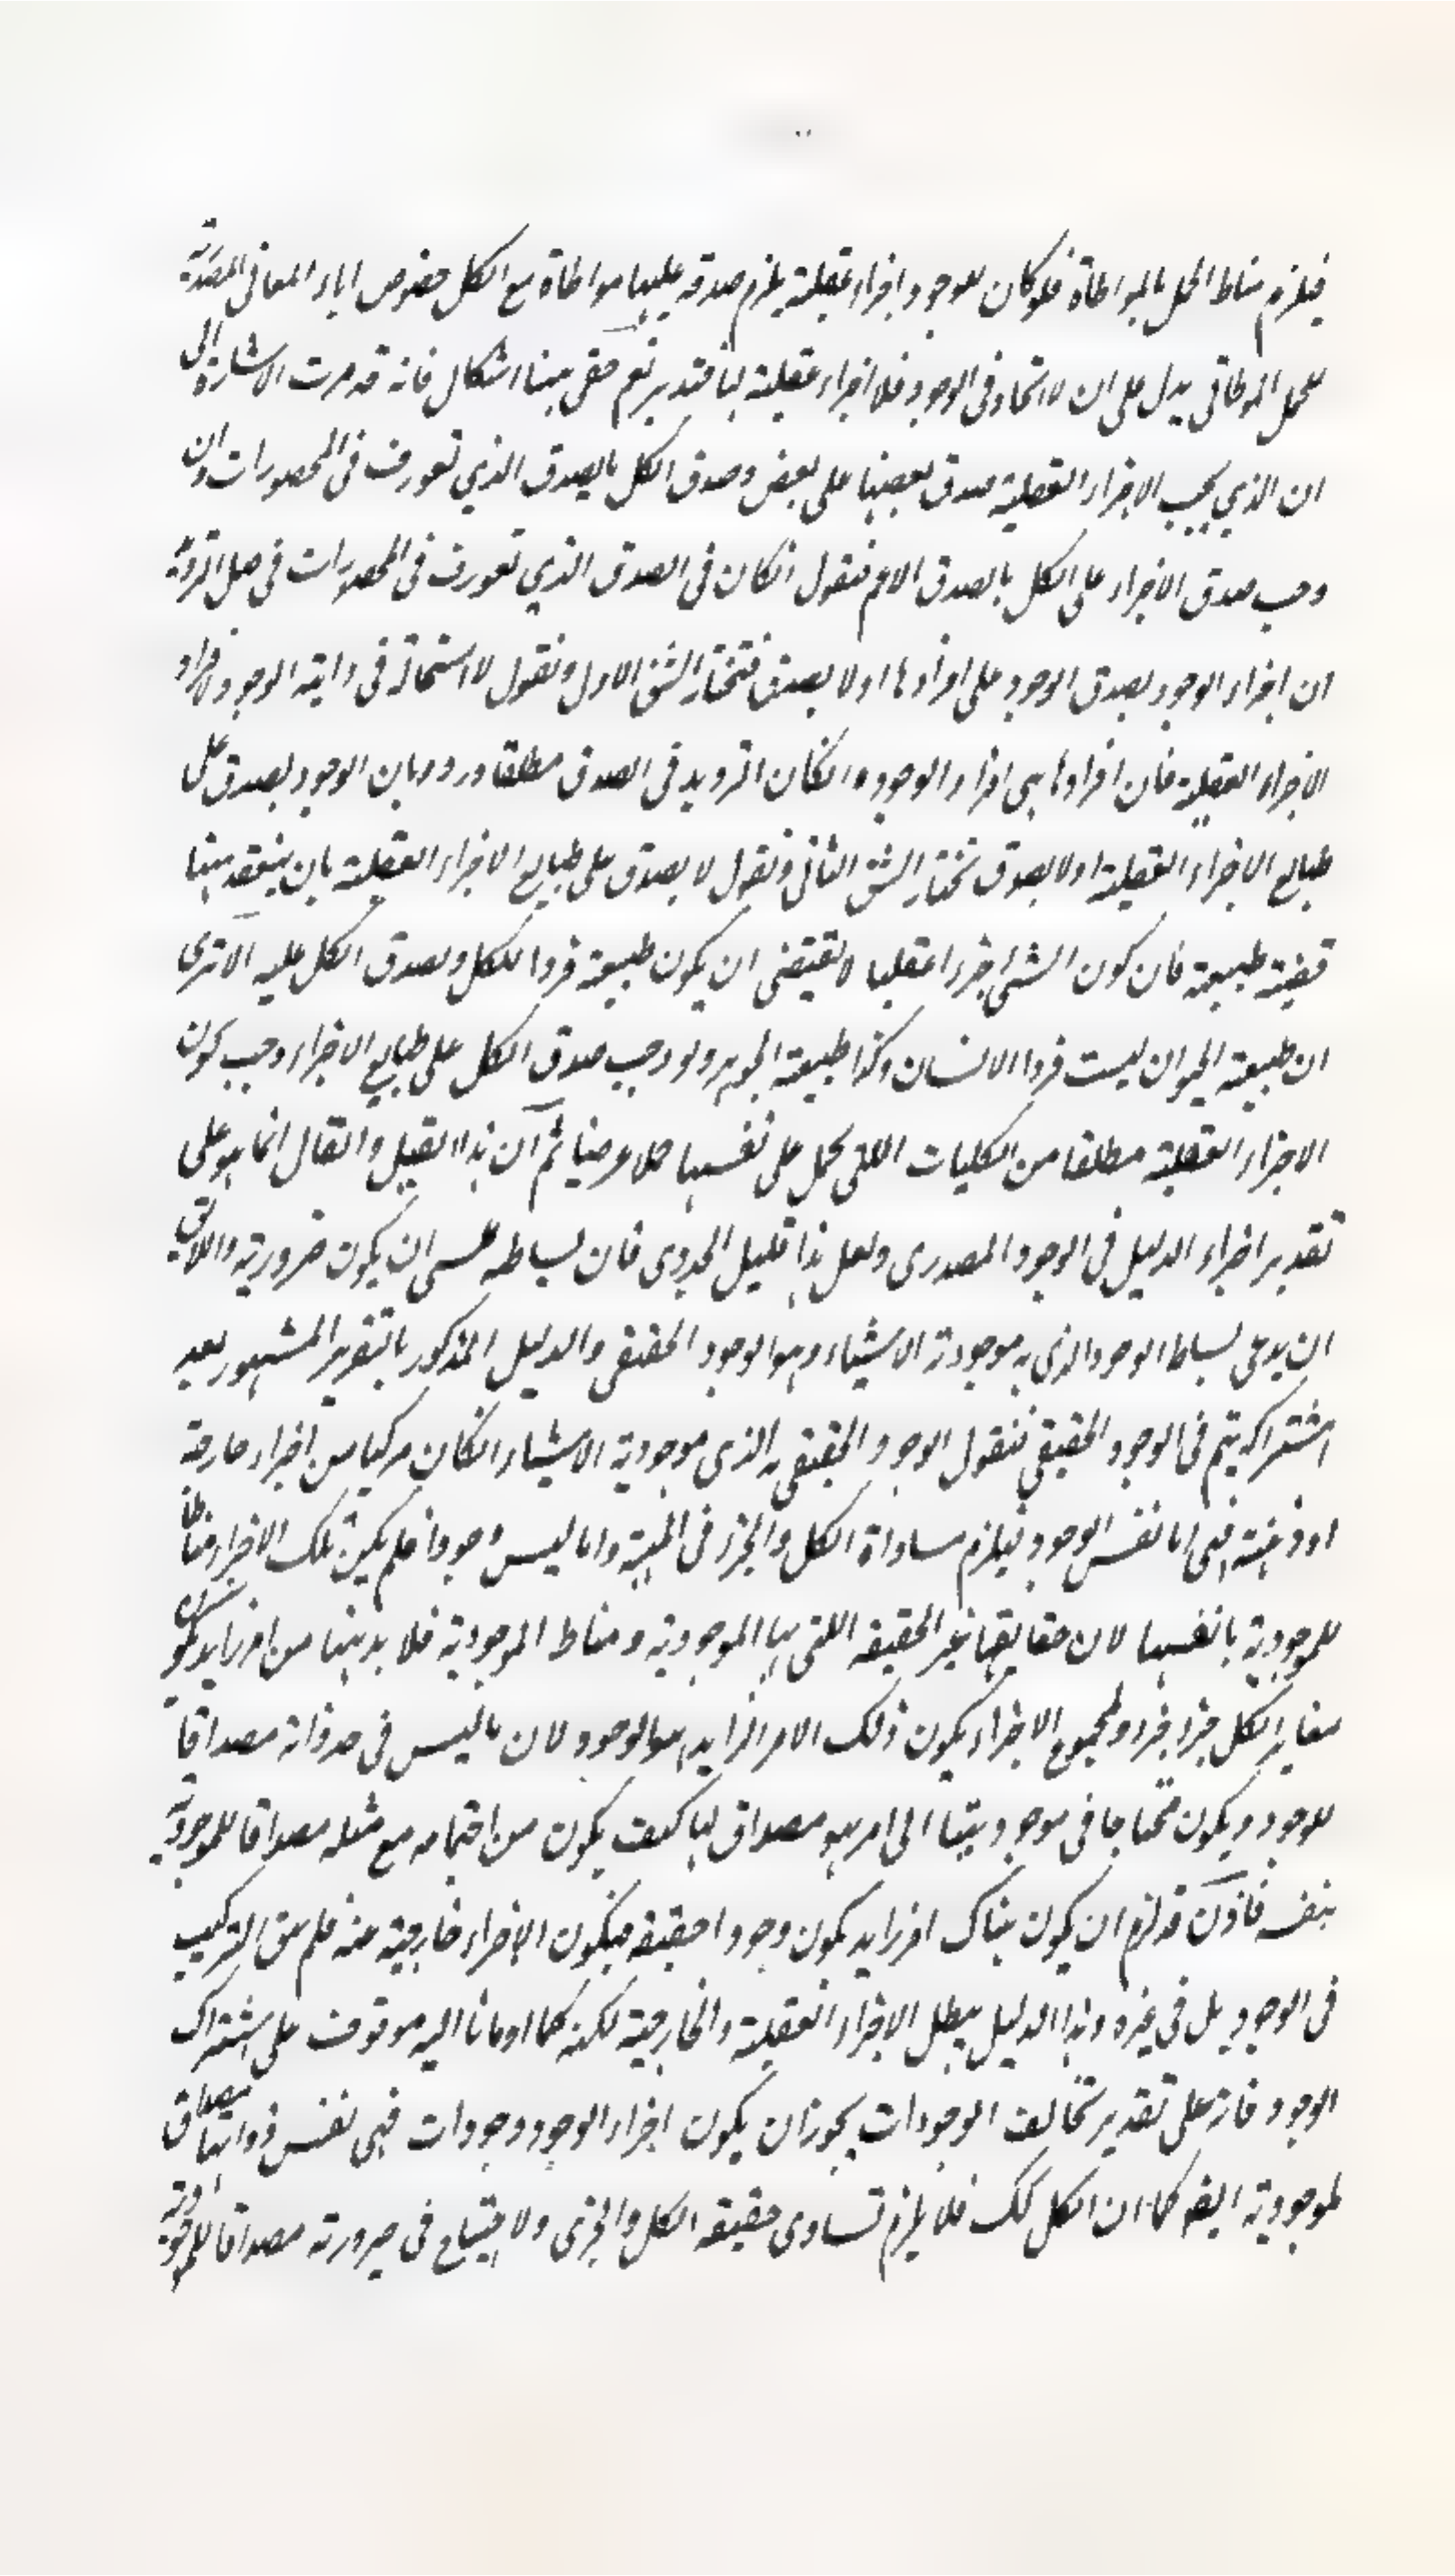 فيلزم مناط الحمل بالمواطاة فلو كان للوجود اجزاء عقلية يلزم صدقه عليها مواطاة مع الكل خصوص اباء المعانى المصدرية
للحمل المواطاتى يدل على ان لا اتحاد فى الوجود فلا اجزاء عقلية لها فتدبر نعم بقى ههنا اشكال فانه قد مرت الاشارة الى
ان الذي يجب الاجزاء العقلية صدق بعضها على بعض وصدق الكل بالصدق الذي تعورف فى المحصورات وان
وجب صدق الاجزاء على الكل بالصدق الاعم فنقول انكان فى الصدق الذي تعورف فى المحصورات فى اصل الترديد
ان اجزاء الوجود يصدق الوجود على افرادها اولا يصدق فتختار الشق الاول ونقول لا استحالة فى ذاتية الوجود لافراد
الاجزاء العقلية فان افرادها هى افراد الوجود وانكان الترديد فى الصدق مطلقا وردد بان الوجود يصدق على
طبايع الاجزاء العقلية اولا يصدق نختار الشق الثانى ونقول لا يصدق على طبايع الاجزاء العقلية بان ينعقد ههنا
قضية طبيعية فان كون الشئ جزءا عقليا لا يقتضى ان يكون طبيعة فردا للكل ويصدق الكل عليه الا ترى
ان طبيعة الحيوان ليست فردا الانسان وكذا طبيعة الجوهر ولو وجب صدق الكل على طبايع الاجزاء وجب كون
الاجزاء العقلية مطلقا من الكليات اللتى يحمل على نفسها حملا عرضيا ثم ان هذا القيل والقال انما هو على
تقدير اجزاء الدليل فى الوجود المصدرى ولعل هذا قليل الجدوى فان بساطه عسى ان يكون ضرورية واللايق
ان يدعى بساطة الوجود الذى به موجودية الاشياء وهو الوجود الحقيقى والدليل المذكور بالتقرير المشهور بعد
اشتراكه يتم فى الوجود الحقيقى فنقول الوجود الحقيقى به الذى موجودية الاشياء انكان مركبا من اجزاء خارجة
او ذهنية فهى اما نفس الوجود فيلزم مساواة الكل والجزء فى المهية واما ليس وجودا فلم يكن تلك الاجزاء مناطا
للموجودية بانفسها لان حقايقها غير الحقيقة اللتى بها الموجودية ومناط الموجودية فلا بد ههنا من امر زايد
مغاير لكل جزء جزء ولمجموع الاجزاء يكون ذلك الامر الزايد هو الوجود لان ما ليس فى حد ذاته مصداقا
للوجود ويكون محتاجا فى موجوديتها الى امر هو مصداق لها كيف يكون من اجتماعه مع مثله مصداقا للموجودية
بنفسه فاذن قد لزم ان يكون هناك امر زايد يكون وجودا حقيقة فيكون الاجزاء خارجية عنه فلم يبق التركيب
فى الوجود بل فى غيره وهذا الدليل يبطل الاجزاء العقلية والخارجية لكنه كما اومانا اليه موقوف على اشتراك
الوجود فانه على تقدير تخالف الوجودات يجوز ان يكون اجزاء الوجود وجودات فهى نفس ذواتها مصداق
لموجودية ايضا كما ان الكل كك فلا يلزم تساوى حقيقة الكل والجزئى ولا يحتاج فى صيرورته مصداقا للموجودية